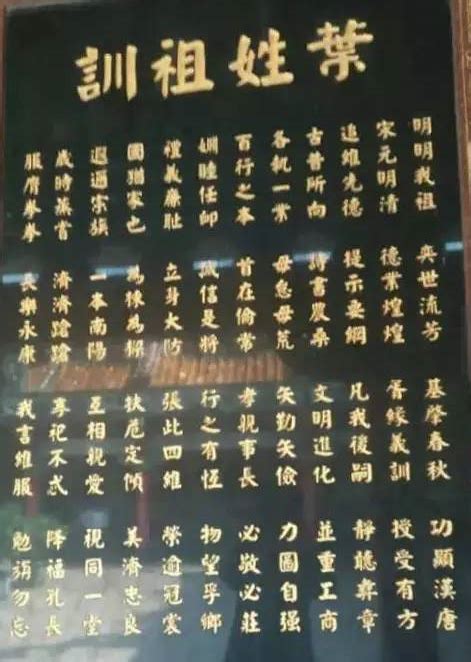 葉姓祖訓
明明我祖 奕世流芳 基肇春秋 功顯漢唐
宋元明清 德業煌煌 胥緣義訓 授受有方
追維先德 提示要綱 凡我後嗣 靜聽彝章
古昔所向 詩書農桑 文明進化 並重工商
各執一業 毋怠毋荒 矢勤矢儉 力圖自强
百行之本 首在倫常 孝親事長 必敬必莊
婣睦任卹 誠信是將 行之有恆 物望孚鄉
禮義廉耻 立身大防 張此四維 榮逾冠裳
國猶家也 為棟為樑 扶危定傾 美濟忠良
遐邇宗族 一本南陽 互相親愛 視同一堂
歲時蒸嘗 濟濟蹌蹌 享祀不忒 降福孔長
服膺拳拳 長樂永康 我言維服 勉旃勿忘